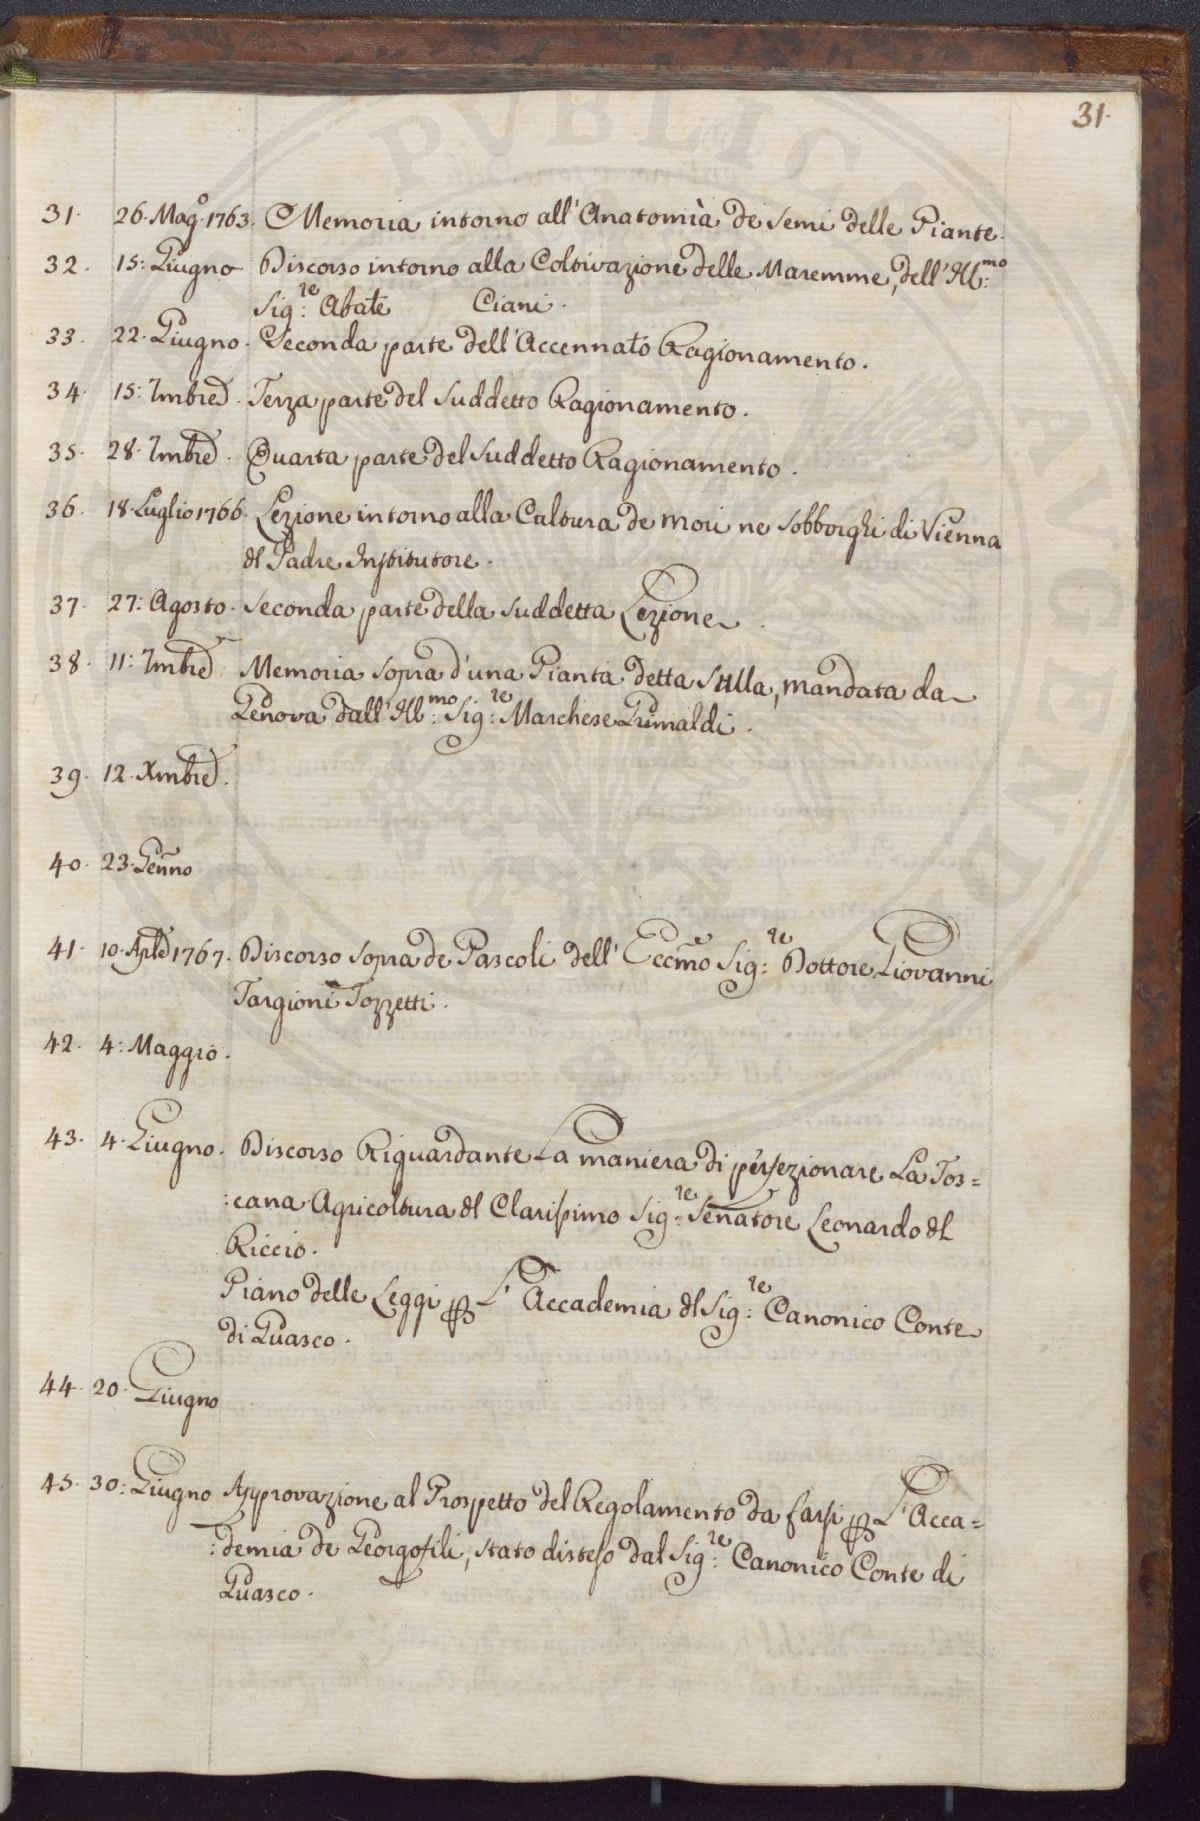 31.
31. 26. Mag.º 1763. Memoria intorno all'Anatomia de semi delle Piante.
32. 15: Giugno Discorso intorno alla Coltivazione delle Maremme, dell'Ill:mo
Sig:re Abate Ciani.
33. 22. Giugno. Seconda parte dell'Accennato Ragionamento.
34. 15: 7mbre. Terza parte del Suddetto Ragionamento.
35. 28. 7mbre. Quarta parte del Suddetto Ragionamento.
36. 18. Luglio 1766. Lezione intorno alla Cultura de Mori ne Sobborghi di Vienna
dl Padre Institutore.
37. 27: Agosto. Seconda parte della Suddetta Lezione.
38. 11: 7mbre Memoria sopra d'una Pianta detta Sulla, mandata da
Genova dall'Ill:mo Sig:re Marchese Grimaldi.
39. 12. Xmbre.
40. 23. Genno
41. 10. Aple 1767. Discorso sopra de Pascoli dell'Eccmo Sig:re Dottore Giovanni
Targioni Tozzetti.
42. 4: Maggio.
43. 4. Giugno. Discorso Riguardante La maniera di perfezionare La Tos=
:cana Agricoltura dl Clarissimo Sig:re Senatore Leonardo dl
Riccio.
Piano delle Leggi p L'Accademia dl Sig:re Canonico Conte
di Guasco.
44. 20. Giugno
45. 30: Giugno Approvazione al Prospetto del Regolamento da farsi p L'Acca=
:demia de Georgofili, stato disteso dal Sig:re Canonico Conte di
Guasco.